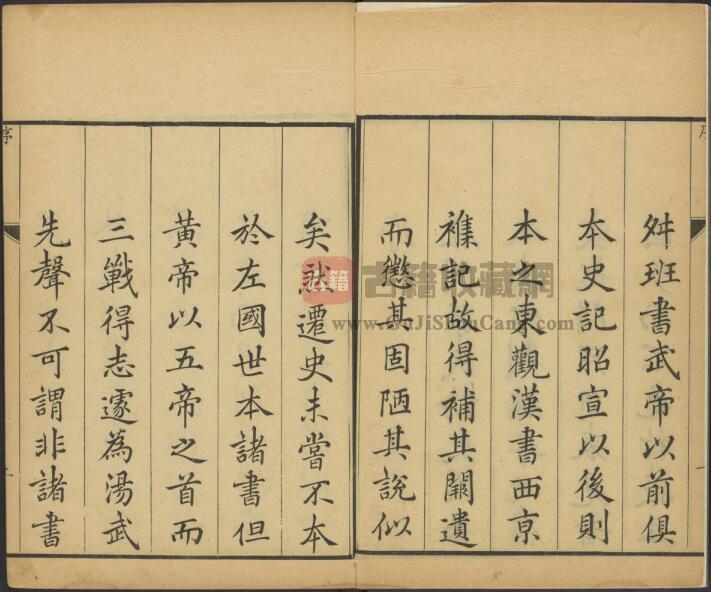 舛班書武帝以前俱
本史記昭宣以後則
本之東觀漢書西亰
襍記故得補其闕遺
而懲其固陋其說似
矣然遷史未嘗不本
於左國世本諸書但
黃帝以五帝之首而
三戰得志遂為湯武
先聲不可謂非諸書
序
古籍
古籍收藏網
www.GuJiShouCang.com